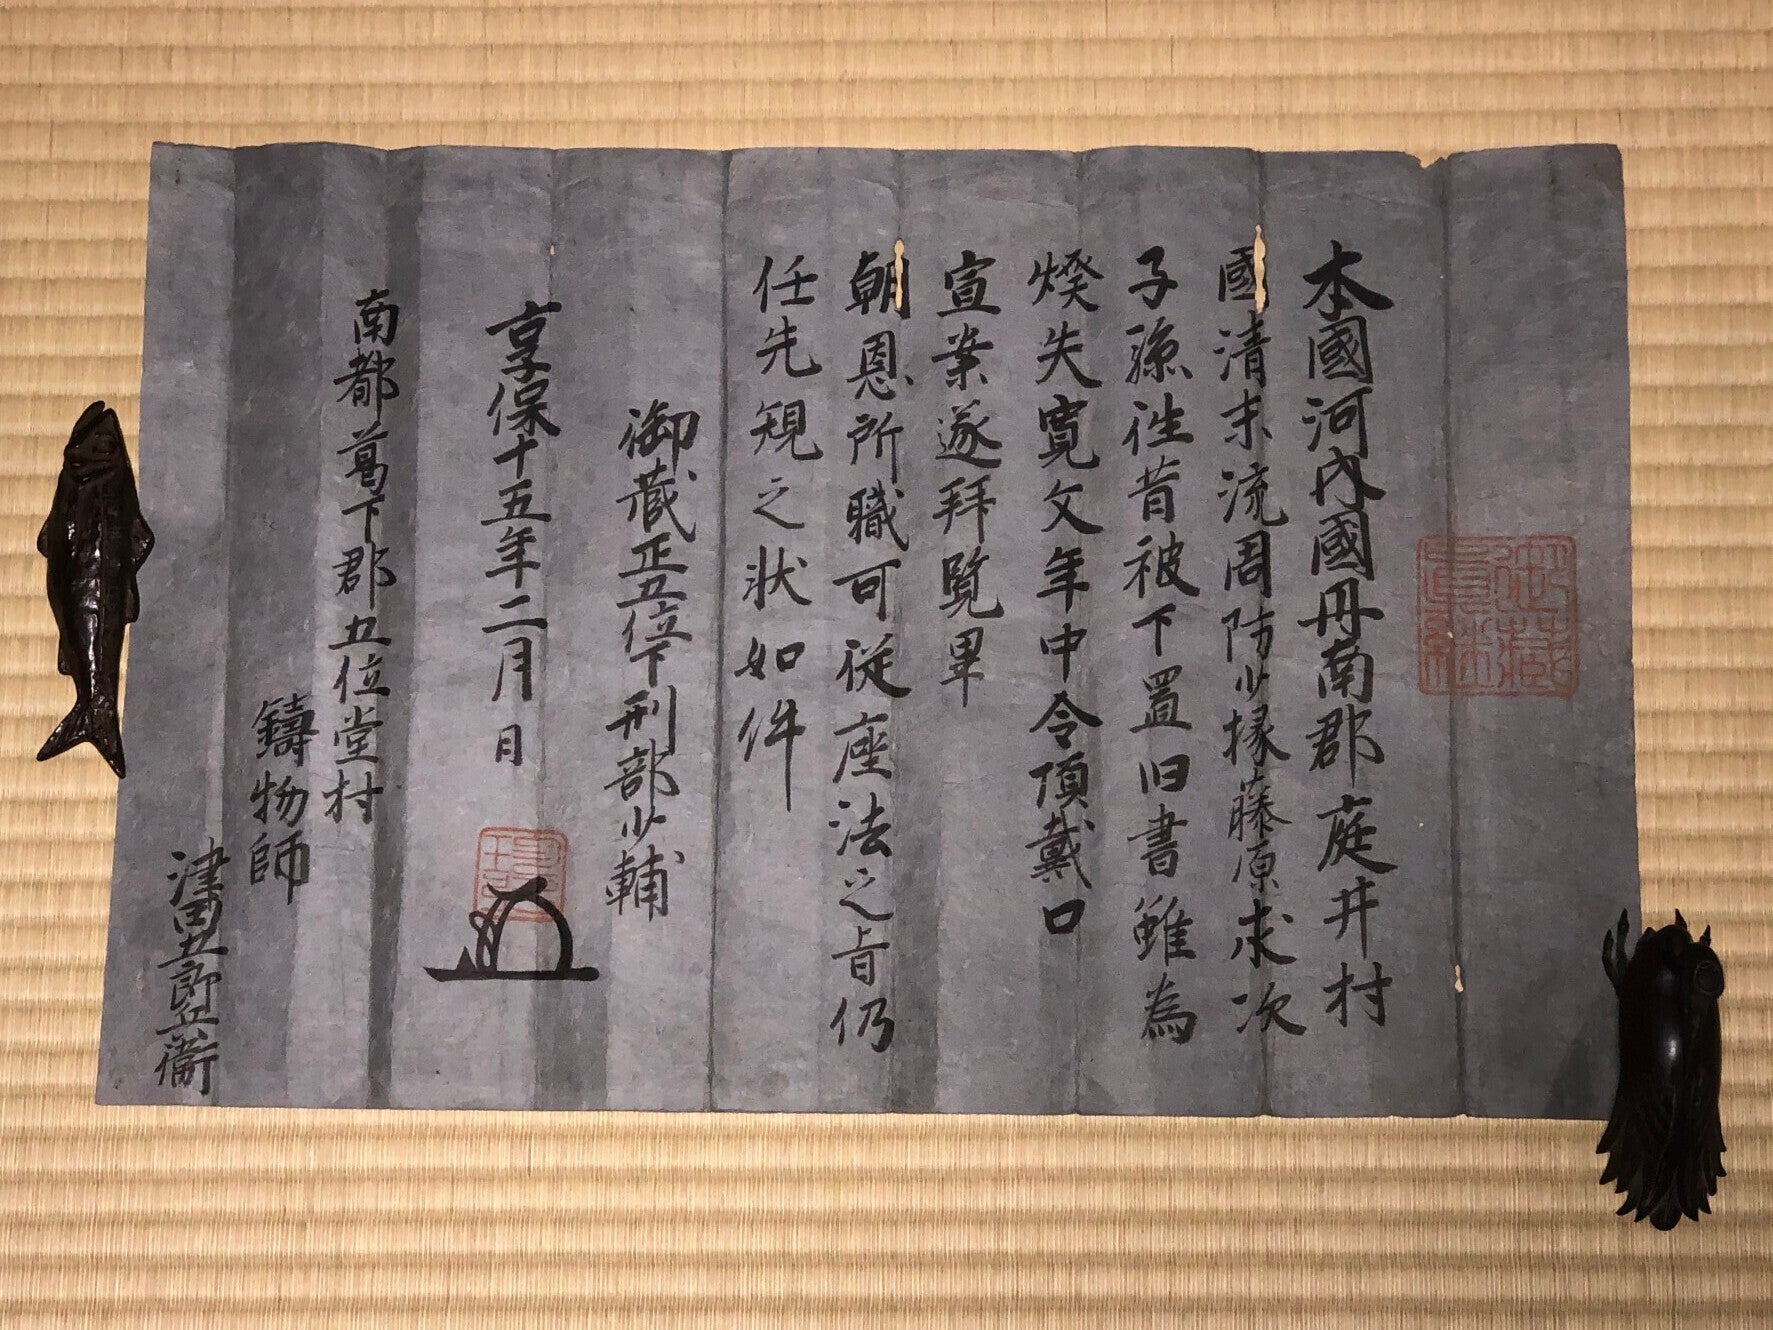 本國河内國丹南郡庭井村
國清末流周防少掾藤原求次
子孫往昔被下置旧書雖為
燓失寛文年中令頂戴口
宣案遂拜覧畢
朝恩所職可従座法之旨仍
任先規之状如件
御蔵正五位下刑部少輔
享保十五年二月日
南都葛下郡五位堂村
鋳物師
津田五郎兵衞